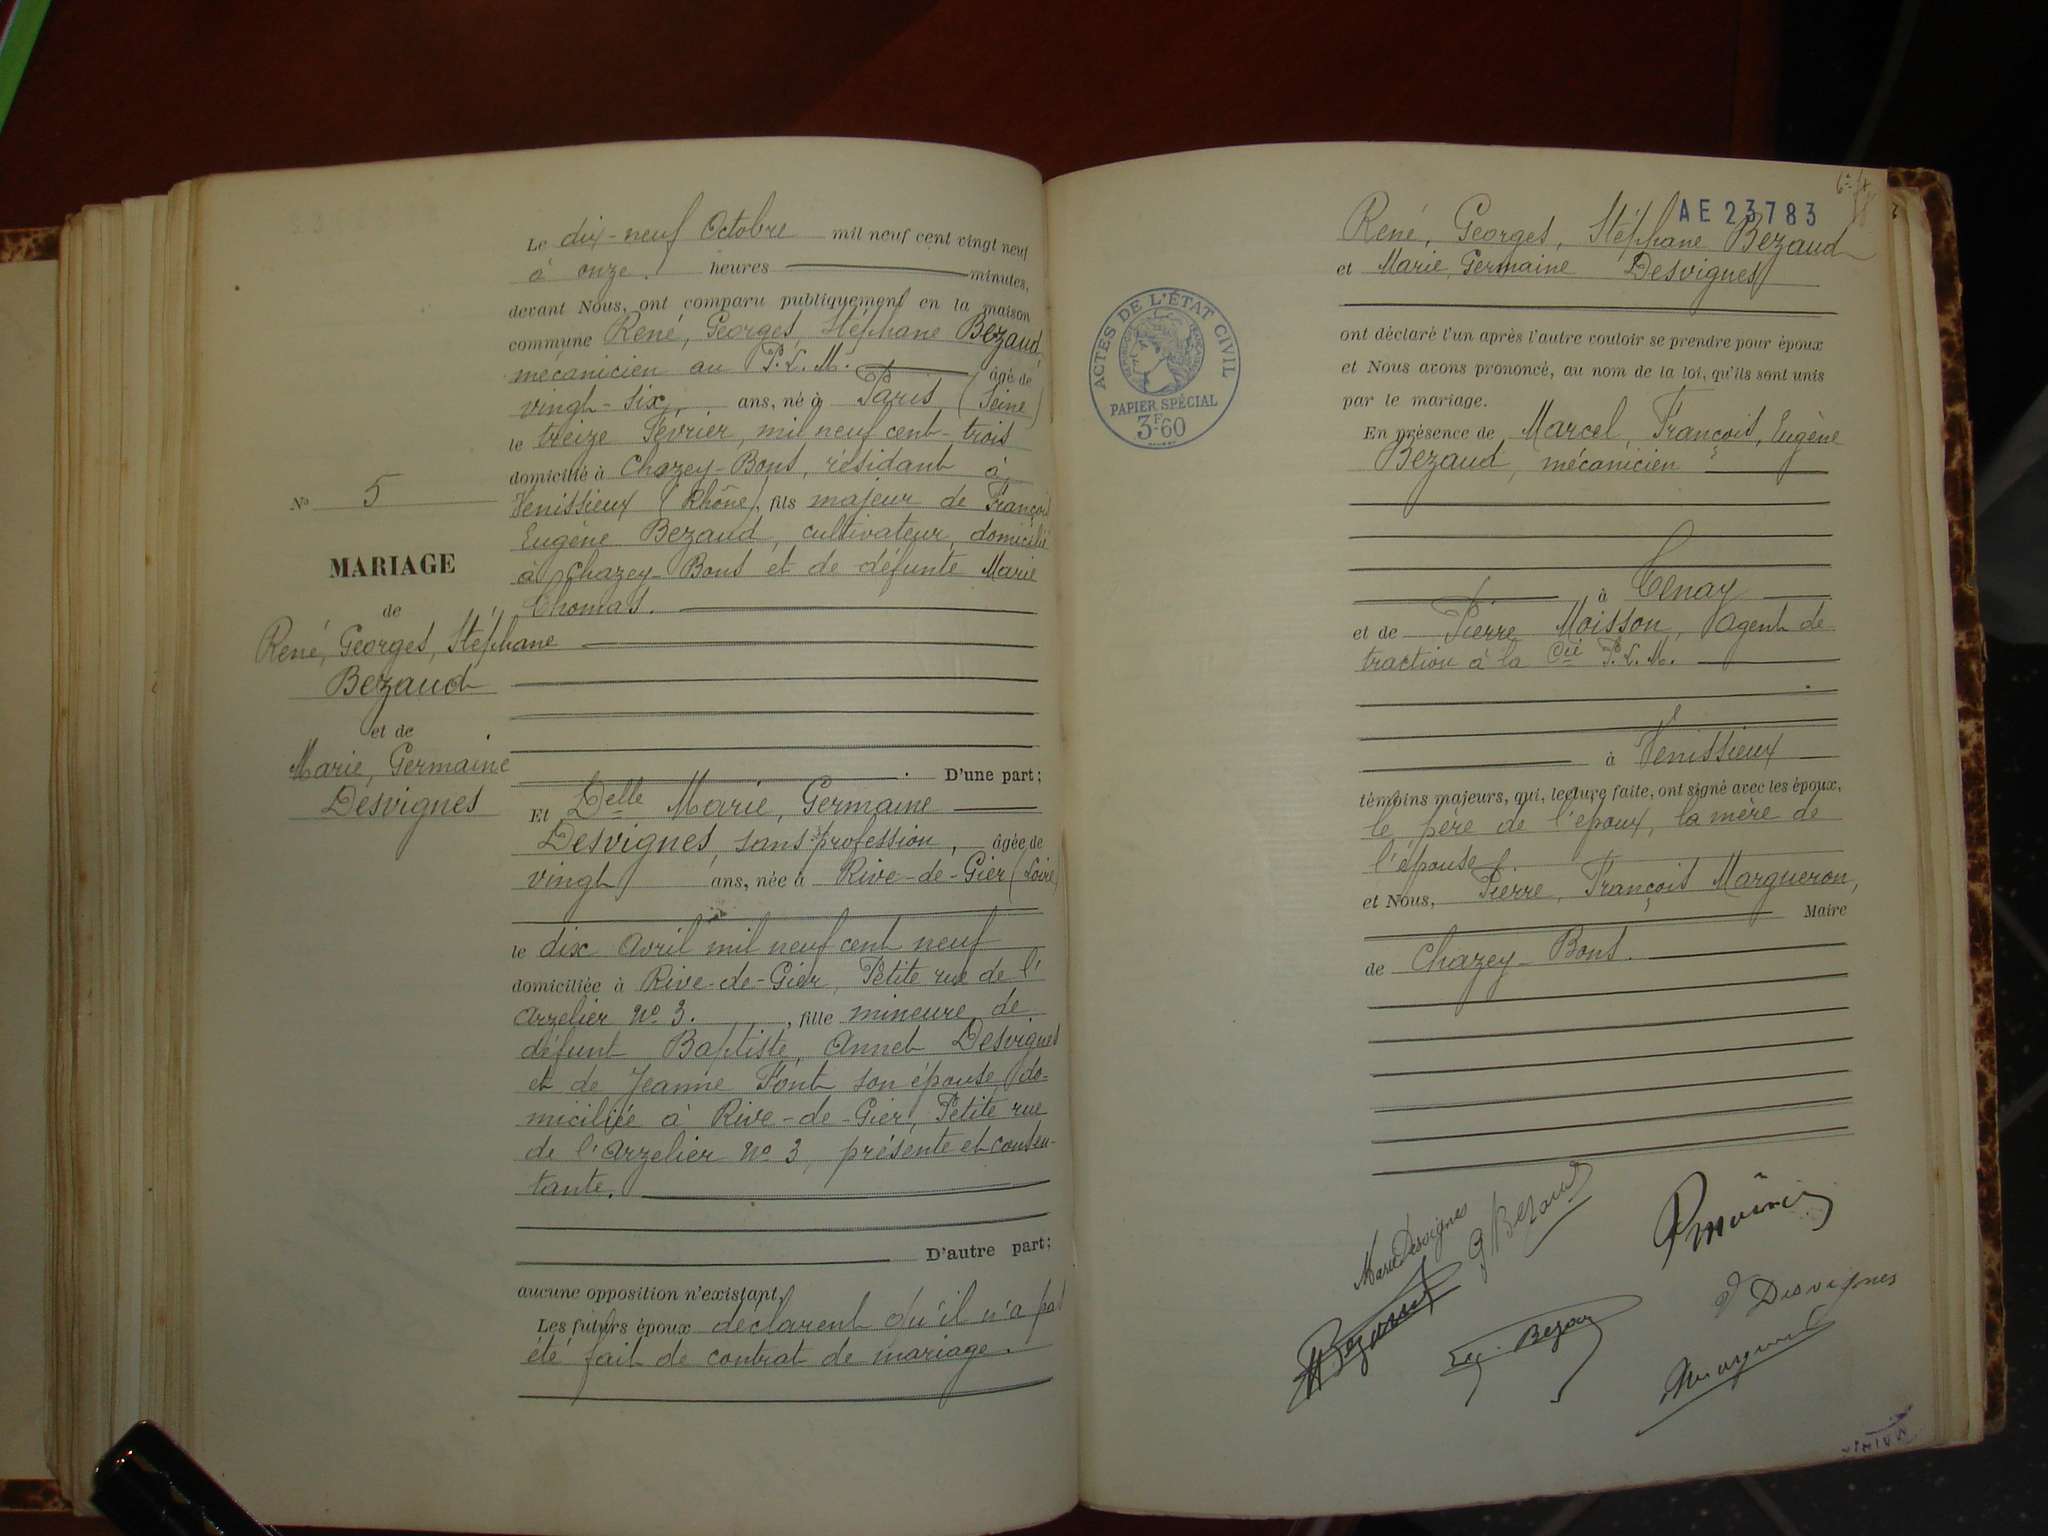 Le dix-neuf Octobre mil neuf cent vingt neuf
à onze heures minutes,
devant Nous, ont comparu publiquement en la maison
commune René, Georges, Stéphane Bezaud,
mécanicien au P.L.M. âgé de
vingt-six, ans, né à Paris (Seine)
le treize Février mil neuf cent-trois
domicilié à Chazey-Bons, résidant à
Vénissieux (Rhône), fils majeur de François
Eugène Bezaud, cultivateur, domicilié
à Chazey-Bons et de défunte Marie
Thomas.
D'une part;
Et Delle Marie, Germaine
Desvignes, sans profession, âgée de
vingt ans, née à Rive-de-Gier (Loire)
le dix avril mil neuf cent neuf
domiciliée à Rive-de-Gier, Petite rue de l'
Arzelier No 3. , fille mineure de
défunt Baptiste, Annet Desvignes
et de Jeanne Font son épouse, do-
miciliée à Rive-de-Gier, Petite rue
de l'Arzelier No 3, présente et consen-
tante.
D'autre part;
aucune opposition n'existant,
Les futurs époux déclarent qu'il n'a pas
été fait de contrat de mariage.
No 5
MARIAGE
de
René, Georges, Stéphane
Bezaud
et de
Marie, Germaine
Desvignes
AE 23783
René, Georges, Stéphane Bezaud
et Marie, Germaine Desvignes
ont déclaré l'un après l'autre vouloir se prendre pour époux
et Nous avons prononcé, au nom de la loi, qu'ils sont unis
par le mariage.
En présence de Marcel, François, Eugène
Bezaud, mécanicien
à Tenay
et de Pierre Moisson, agent de
traction à la Cie P.L.M.
à Vénissieux
témoins majeurs, qui, lecture faite, ont signé avec les époux,
le père de l'époux, la mère de
l'épouse
et Nous, Pierre, François Margueron,
Maire
de Chazey-Bons.
ACTES DE L'ÉTAT CIVIL
PAPIER SPÉCIAL
3F60
Marie Desvignes
G Bezaud
Bezaud
Eug. Bezau
J Desvignes